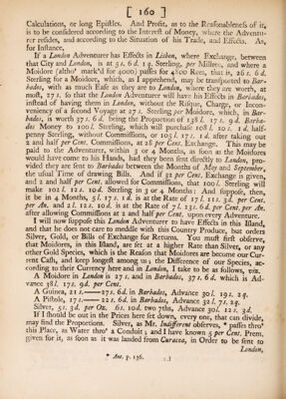 [ 160 ]
Calculations, or long Epistles. And Profit, as to the Reasonableness of it,
is to be considered according to the Interest of Money, where the Adventu-
rer resides, and according to the Situation of his Trade, and Effects. As,
for Instance,
If a London Adventurer has Effects in Lisbon, where Exchange, between
that City and London, is at 5 s. 6 d. Sterling, per Millree, and where a
Moidore (altho' mark'd for 4000) passes for 4800 Rees, that is, 26 s. 6 d.
Sterling for a Moidore, which, as I apprehend, may be transported to Bar-
bados, with as much Ease as they are to London, where they are worth, at
most, 27 s. so that the London Adventurer will have his Effects in Barbados,
instead of having them in London, without the Risque, Charge, or Incon-
veniency of a second Voyage at 27 s. Sterling per Moidore, which, in Bar-
bados, is worth 37 s. 6 d. being the Proportion of 138 l. 17 s. 9 d. Barba-
dos Money to 100 l. Sterling, which will purchase 108 l. 10 s. 1 d. half-
penny Sterling, without Commissions, or 105 l. 17 s. 1 d. after taking out
2 and half per Cent. Commissions, at 28 per Cent. Exchange. This may be
paid to the Adventurer, within 3 or 4 Months, as soon as the Moidores
would have come to his Hands, had they been sent directly to London, pro-
vided they are sent to Barbados between the Months of May and September,
the usual Time of drawing Bills. And if 32 per Cent. Exchange is given,
and 2 and half per Cent. allowed for Commissions, that 100 l. Sterling will
make 102 l. 12 s. 10 d. Sterling in 3 or 4 Months: And suppose, then,
it be in 4 Months,
per An. and
after allowing Commissions at 2 and half per Cent. upon every Adventure.
I will now suppose this London Adventurer to have Effects in this Island,
and that he does not care to meddle with this Country Produce, but orders
Silver, Gold, or Bills of Exchange for Returns. You must first observe,
that Moidores, in this Island, are set at a higher Rate than Silver, or any
other Gold Species, which is the Reason that Moidores are become our Cur-
rent Cash, and keep longest among us; the Difference of our Species, ac-
cording to their Currency here and in London, I take to be as follows, viz.
A Moidore in London is 27 s. and in Barbados, 37 s. 6 d. which is Ad-
vance 38 l. 17 s. 9 d. per Cent.
A Guinea, 21 s.——27 s. 6 d. in Barbados, Advance 30 l. 19 s. 2 q.
A Pistole, 17 s.——22 s. 6 d. in Barbados, Advance 32 l. 7 s. 2 q.
Silver, 5 s. 3 d. per Oz. 6 s. 10 d. two 7ths, Advance 30 l. 12 s. 3 d.
If I should be out in the Prices here set down, every one, that can divide,
may find the Proportions. Silver, as Mr. Indifferent observes, * passes thro'
this Place, as Water thro' a Conduit; and I have known 5 per Cent. Prem.
given for it, as soon as it was landed from Curacoa, in Order to be sent to
London,
* Ant. p. 136.